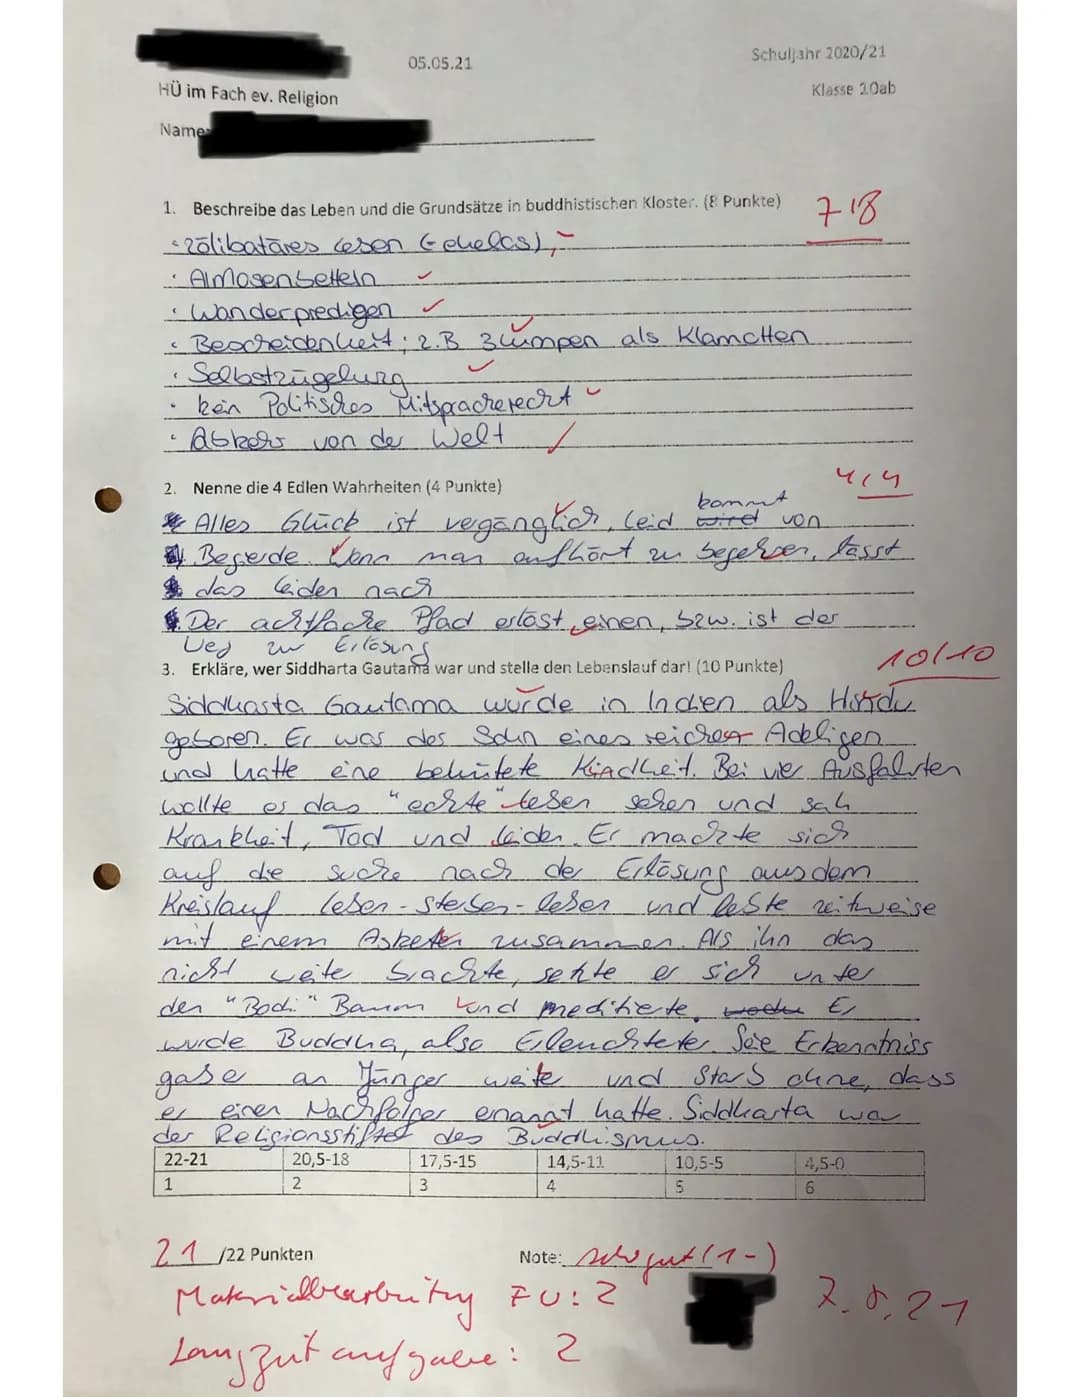 05.05.21
Schuljahr 2020/21
HÜ im Fach ev. Religion
Klasse 10ab
Name:
1. Beschreibe das Leben und die Grundsätze in buddhistischen Kloster. (8 Punkte)
7/8
· zölibatäres Leben (ehelos),
· Almosenbetteln
· Wanderpredigen
· Bescheidenheit; z.B 3 Lumpen als Klamotten
· Selbstzügelung
· kein Politisches Mitspracherecht
· Abkehr von der Welt
2. Nenne die 4 Edlen Wahrheiten (4 Punkte)
4/4
kommt
Alles Glück ist vergänglich, Leid wird von
Begierde. Wenn man aufhört zu begehren, lässt
das Leiden nach
Der achtfache Pfad erlöst einen, bzw. ist der
Weg zur Erlösung
3. Erkläre, wer Siddharta Gautama war und stelle den Lebenslauf dar! (10 Punkte)
10/10
Siddharta Gautama wurde in Indien als Hindu
geboren. Er war der Sohn eines reichen Adeligen
und hatte eine behütete Kindheit. Bei vier Ausfahrten
wollte er das "echte" Leben sehen und sah
Krankheit, Tod und Leiden. Er machte sich
auf die suche nach der Erlösung aus dem
Kreislauf leben-sterben-leben und lebte zeitweise
mit einem Asketen zusammen. Als ihn das
nicht weiter brachte, setzte er sich unter
den "Bodi" Baum und meditierte. Er
wurde Buddha, also Erleuchteter. Seine Erkenntniss
gab er an Jünger weiter und starb ohne, dass
er einen Nachfolger ernannt hatte. Siddharta war
der Religionsstifter des Buddhismus.
22-21 20,5-18 17,5-15 14,5-11 10,5-5 4,5-0
1 2 3 4 5 6
21 /22 Punkten
Note: sehr gut (1-)
Materialbearbeitung FU: 2
7.5.21
Langzeitaufgabe: 2